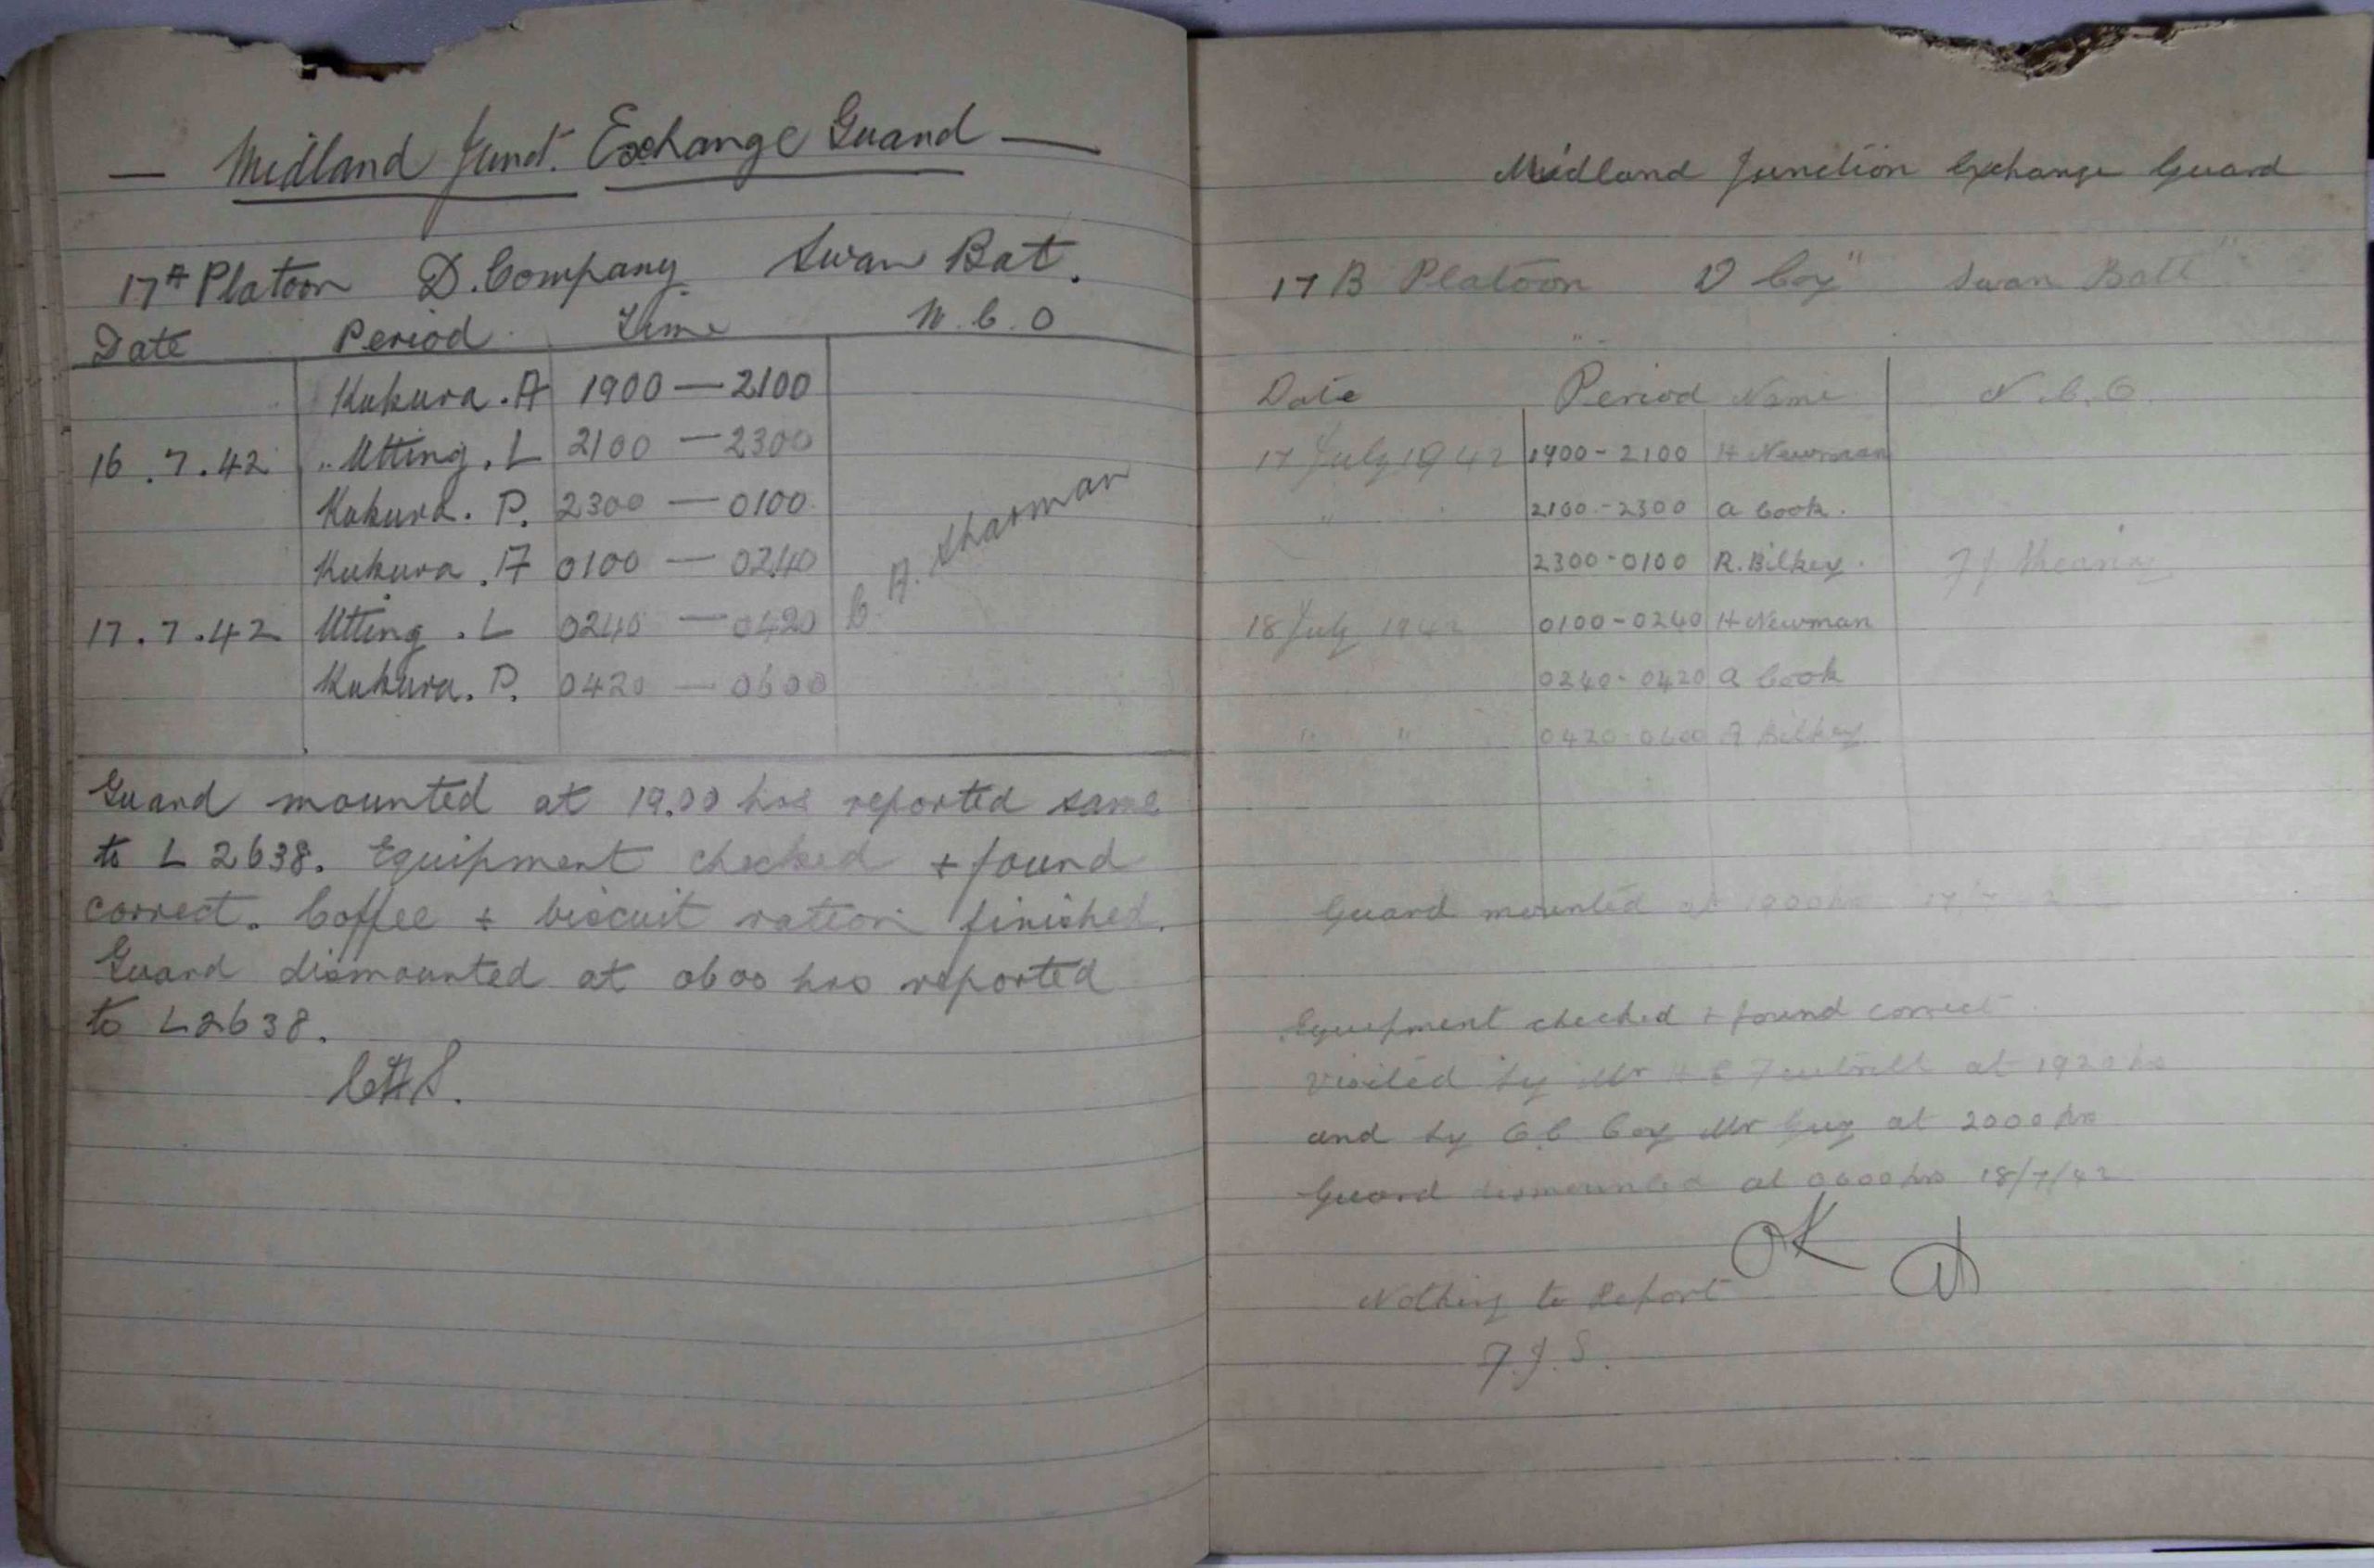 — Midland Junct. Exchange Guard —
17A Platoon D. Company Swan Bat.
Date Period Time N.C.O
Kukura. A 1900 — 2100
16.7.42 Utting. L 2100 — 2300
Kukura. P. 2300 — 0100
Kukura. A 0100 — 0240
C. A. Sharman
17.7.42 Utting. L 0240 — 0420
Kukura. P. 0420 — 0600
Guard mounted at 19.00 hrs reported same
to L 2638. Equipment checked + found
correct. Coffee + biscuit ration finished.
Guard dismounted at 0600 hrs reported
to L2638.
CAS.
Midland Junction Exchange Guard
17 B Platoon D Coy" Swan Batt"
Date Period Name N.C.O.
17 July 1942 1900-2100 H Newman
" 2100-2300 A Cook.
2300-0100 R. Bilkey.
18 July 1942 0100-0240 H Newman
0240-0420 A Cook
" " 0420-0600 Bilkey
Guard mounted at 1900 hrs 17/7
Equipment checked + found correct
visited by Mr H E at 1920 hrs
and by O.C. Coy Mr Guy at 2000 hrs
Guard dismounted at 0600 hrs 18/7/42
OK
Nothing to Report
F.J.S.